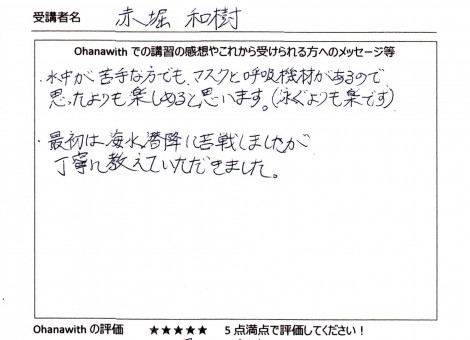 受講者名 赤堀 和樹
Ohanawith での講習の感想やこれから受けられる方へのメッセージ等
・水中が苦手な方でも、マスクと呼吸機材があるので
思ったよりも楽しめると思います。(泳ぐよりも楽です)
・最初は海水潜降に苦戦しましたが
丁寧に教えていただきました。
Ohanawith の評価 ★★★★★ 5 点満点で評価してください!